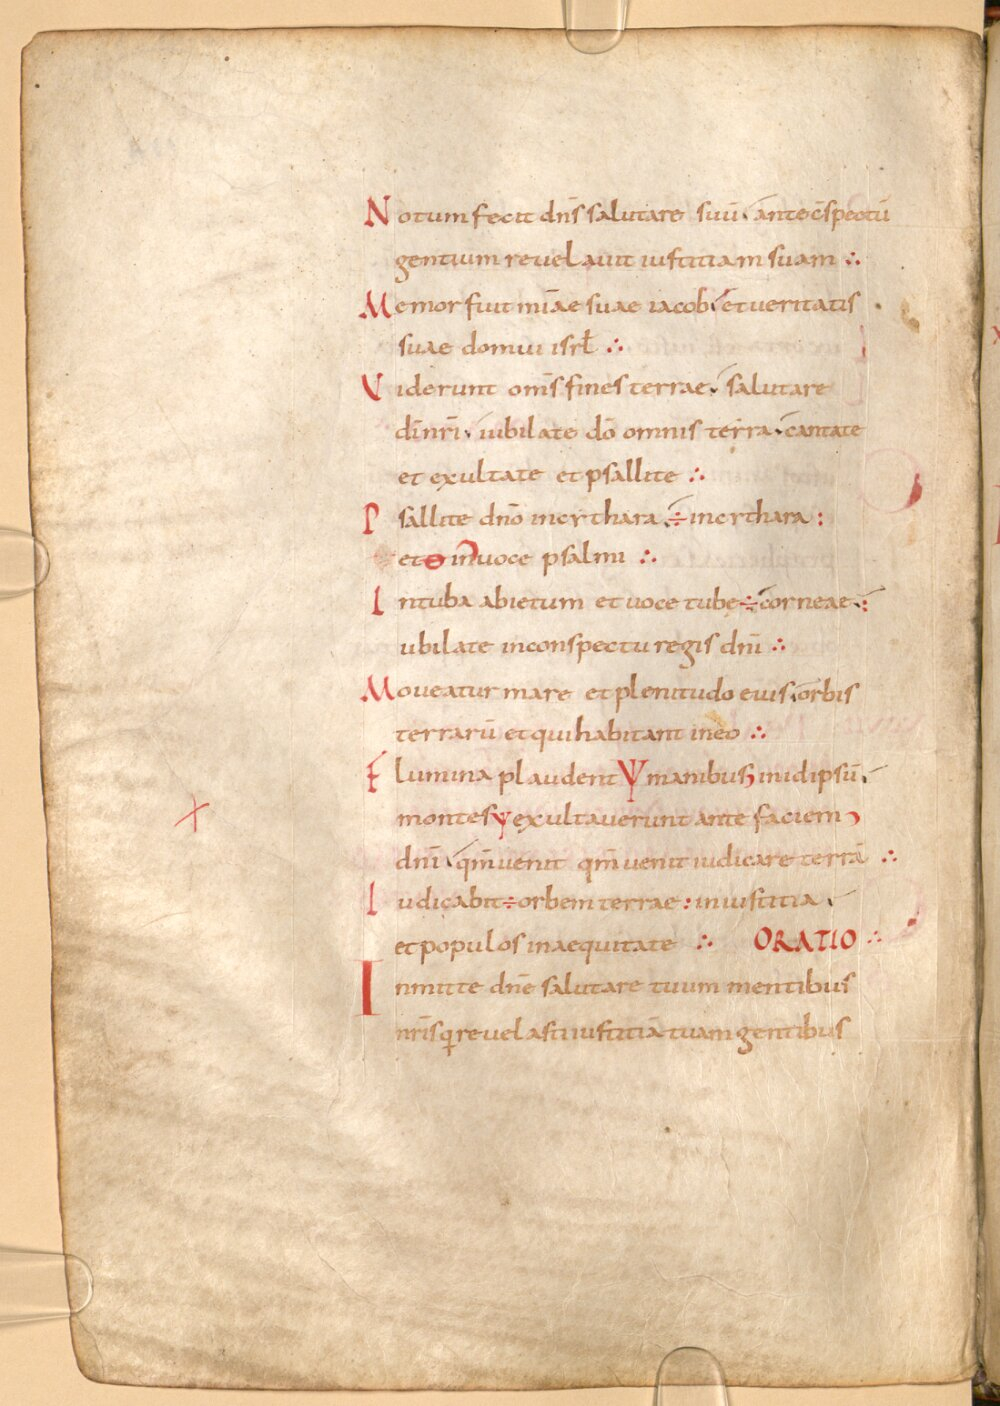 Notum fecit dn̄s salutare suū. ante c̄spectū
gentium revelavit iustitiam suam ∴
Memor fuit miāe suae iacob. et veritatis
suae domui isrł ∴
Viderunt om̄s fines terrae. salutare
dīnr̄i. iubilate dō omnis terra. cantate
et exultate et psallite ∴
Psallite dn̄o in cythara. ÷ in cythara :
et in voce psalmi ∴
In tuba abietum et voce tubę ÷ corneae. :
ubilate in conspectu regis dn̄i ∴
Moveatur mare et plenitudo eius. orbis
terrarū et qui habitant in eo ∴
Flumina plaudent Ψ manibus in idipsū.
montes Ψ exultaverunt ante faciem
dn̄i. qm̄ venit qm̄ venit iudicare terrā ∴
Iudicabit ÷ orbem terrae : in iustitia.
et populos in aequitate ∴ ORATIO ∴
Inmitte dn̄e salutare tuum mentibus
nr̄is q revelasti iustitiā tuam gentibus